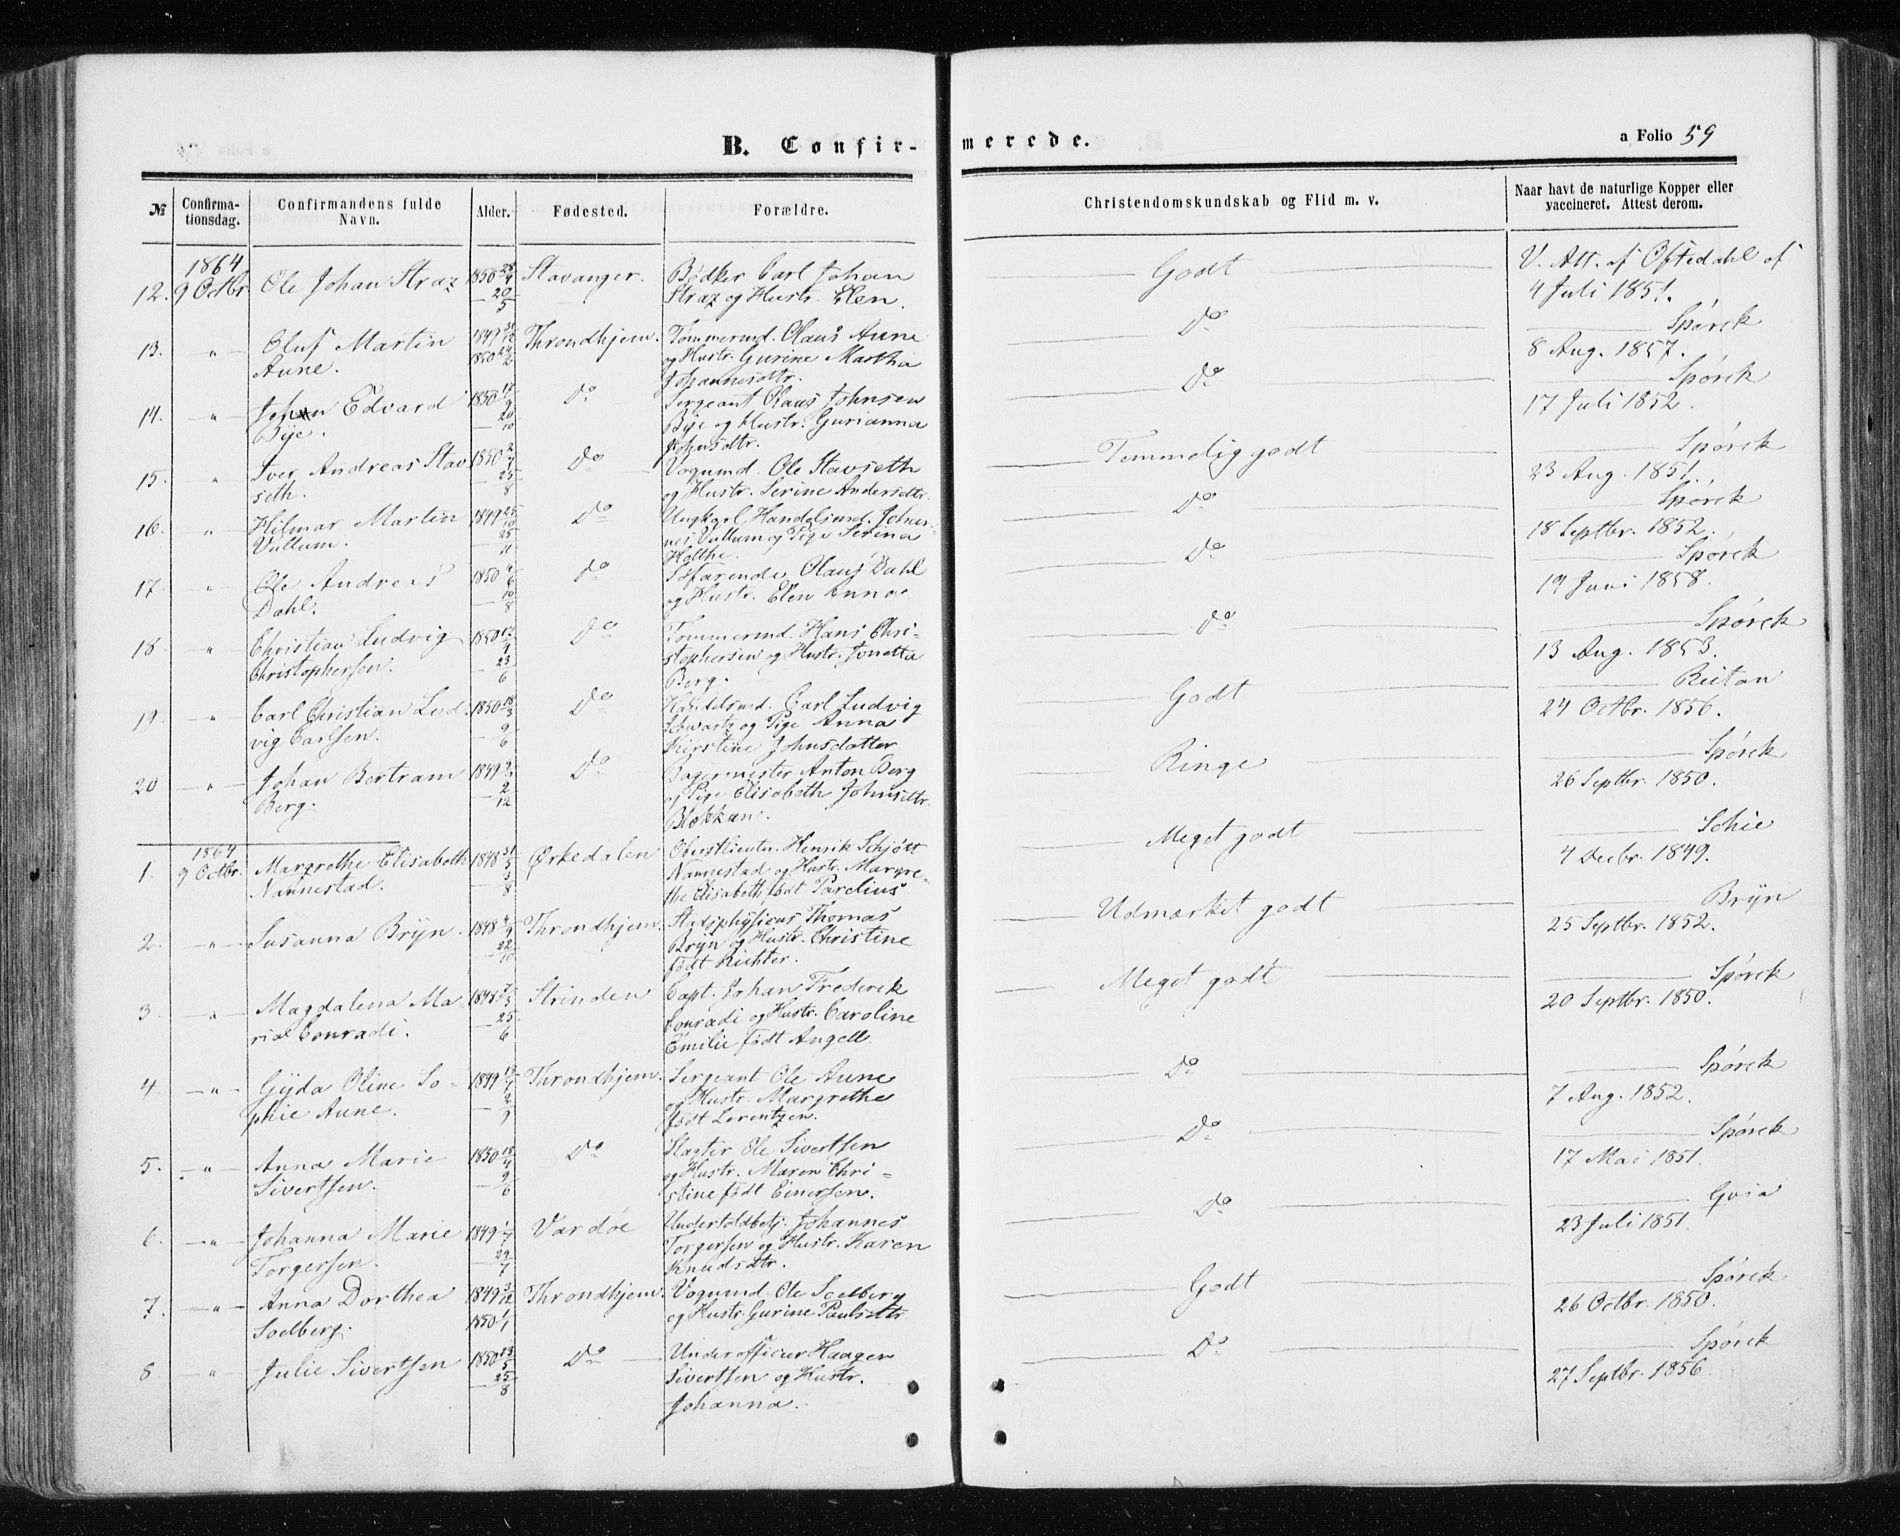 B. Confir-
merede.
a Folio 59
№
Confirma-
tionsdag.
Confirmandens fulde
Navn.
Alder.
Fødested.
Forældre.
Christendomskundskab og Flid m. v.
Naar havt de naturlige Kopper eller
vaccineret. Attest derom.
1864
12. 9 Octbr. Ole Johan Straz 1850 28/4 20/5 Stavanger. Bødker Carl Johan
Straz og Hustr. Elen.
Godt
V. Att. af Oftedahl af
4 Juli 1851.
13. „ Oluf Martin
Aune.
1849 31/12 1850 24/2 Throndhjem. Tømmermd. Olaus Aune
og Hustr. Gurine Martha
Johannesdtr.
Do
Spørck
8 Aug. 1857.
14. „ Johan Edvard
Bye.
1850 17/9 20/10 Do Sergeant Claus Johnsen
Bye og Hustr. Gurianna
Johnsdtr.
Do
Spørck
17 Juli 1852.
15. „ Iver Andreas Stav
seth.
1850 2/7 25/8 Do Vognmd. Ole Stavseth
og Hustr. Serine Andersdtr.
Temmelig godt
Spørck
23 Aug. 1851.
16. „ Hilmar Martin
Vullum.
1849 25/10 25/11 Do Ungkarl Handelsmd. Johan-
nes Vullum og Pige Serina
Holthe.
Do
Spørck
18 Septbr. 1852.
17. „ Ole Andreas
Dahl.
1850 4/6 10/8 Do Søfarende Olaus Dahl
og Hustr. Elen Anna
Do
Spørck
19 Juni 1858.
18. „ Christian Ludvig
Christophersen.
1850 17/4 23/6 Do Tømmermd. Hans Chri-
stophersen og Hustr. Jonetta
Berg.
Do
Spørck
13 Aug. 1853.
19. „ Carl Christian Lud-
vig Carlsen.
1850 18/3 9/6 Do Handelsmd. Carl Ludvig
Schwartz og Pige Anna
Kirstine Johnsdatter
Godt
Reitan
24 Octbr. 1856.
20 „ Johan Bertram
Berg.
1849 2/12 Do Bagermester Anton Berg
og Pige Elisabeth Johnsdtr.
Blokkan.
Ringe
Spørck
26 Septbr. 1850.
1864
1. 9 Octbr. Margrethe Elisabeth
Nannestad.
1848 31/5 3/8 Ørkedalen Oberstlieutn. Henrik Schjøtt
Nannestad og Hustr. Margre-
the Elisabeth født Parelius
Meget godt
Schie
4 Decbr. 1849.
2. „ Susanna Bryn. 1848 4/9 22/10 Throndhjem. Stadsphysicus Thomas
Bryn og Hustr. Christine
født Richter.
Udmærket godt
Bryn
25 Septbr. 1852.
3. „ Magdalena Ma
ria Conradi.
1848 25/6 Strinden Capt. Johan Frederik
Conradi og Hustr. Caroline
Emilie født Angell.
Meget godt
Spørck
20 Septbr. 1850.
4. „ Gyda Oline So-
phie Aune.
1849 Throndhjem. Sergeant Ole Aune
og Hustr. Margrethe
født Lorentzen.
Do
Spørck
7 Aug. 1852.
5. „ Anna Marie
Sivertsen.
1850 18/4 9/6 Do Slagter Ole Sivertsen
og Hustr. Maren Chri-
stine født Einersen.
Do
Spørck
17 Mai 1851.
6. „ Johanna Marie
Torgersen.
1849 1/7 29/7 Vardøe Undertoldbetj. Johannes
Torgersen og Hustr. Karen
Knudsdtr.
Do
23 Juli 1851.
7. „ Anna Dorthea
Soelberg.
1849 3/12 1850 1/1 Throndhjem. Vognmd. Ole Soelberg
og Hustr. Gurine Paulsdtr.
Godt
Spørck
26 Octbr. 1850.
8 „ Julie Sivertsen 1850 23/5 25/8 Do Underofficer Haagen
Sivertsen og Hustr.
Johanna.
Do
Spørck
27 Septbr. 1856.